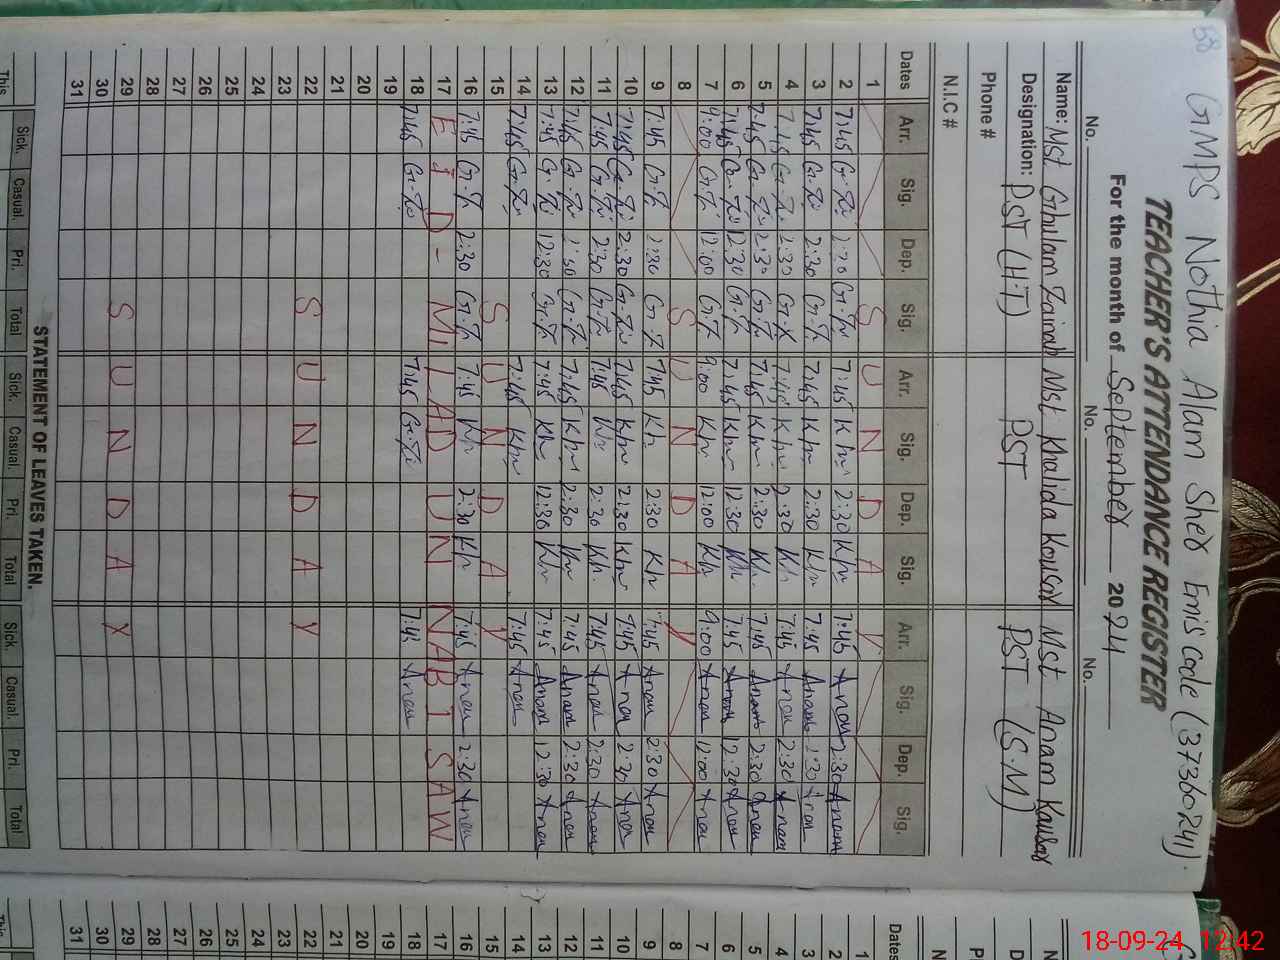 58 GMPS Nothia Alam Sher Emis code (37360241)
TEACHER'S ATTENDANCE REGISTER
For the month of September 2024
No. No. No.
Name: Mst Ghulam Zainab Mst Khalida Kousar Mst Anam Kausar
Designation: PST (H.T) PST PST (S.M)
Phone #
N.I.C #
Dates Arr. Sig. Dep. Sig. Arr. Sig. Dep. Sig. Arr. Sig. Dep. Sig.
1 S U N D A Y
2 7:45 G.Z 2:30 G.Z 7:45 Kh 2:30 Kh 7:45 Anam 2:30 Anam
3 7:45 G.Z 2:30 G.Z 7:45 Kh 2:30 Kh 7:45 Anam 2:30 Anam
4 7:45 G.Z 2:30 G.Z 7:45 Kh 2:30 Kh 7:45 Anam 2:30 Anam
5 7:45 G.Z 2:30 G.Z 7:45 Kh 2:30 Kh 7:45 Anam 2:30 Anam
6 7:45 G.Z 12:30 G.Z 7:45 Kh 12:30 Kh 7:45 Anam 12:30 Anam
7 9:00 G.Z 12:00 G.Z 9:00 Kh 12:00 Kh 9:00 Anam 12:00 Anam
8 S U N D A Y
9 7:45 G.Z 2:30 G.Z 7:45 Kh 2:30 Kh 7:45 Anam 2:30 Anam
10 7:45 G.Z 2:30 G.Z 7:45 Kh 2:30 Kh 7:45 Anam 2:30 Anam
11 7:45 G.Z 2:30 G.Z 7:45 Kh 2:30 Kh 7:45 Anam 2:30 Anam
12 7:45 G.Z 2:30 G.Z 7:45 Kh 2:30 Kh 7:45 Anam 2:30 Anam
13 7:45 G.Z 12:30 G.Z 7:45 Kh 12:30 Kh 7:45 Anam 12:30 Anam
14 7:45 G.Z 7:45 Kh 7:45 Anam
15 S U N D A Y
16 7:45 G.Z 2:30 G.Z 7:45 Kh 2:30 Kh 7:45 Anam 2:30 Anam
17 E i D - MILAD UN NABI SAW
18 7:45 G.Z 7:45 G.Z 7:45 Anam
19
20
21
22 S U N D A Y
23
24
25
26
27
28
29 S U N D A Y
30
31
STATEMENT OF LEAVES TAKEN.
This Sick. Casual. Pri. Total Sick. Casual. Pri. Total Sick. Casual. Pri. Total
Dates
1
2
3
4
5
6
7
8
9
10
11
12
13
14
15
16
17
18
19
20
21
22
23
24
25
26
27
28
29
30
31
This
18-09-24 12:42